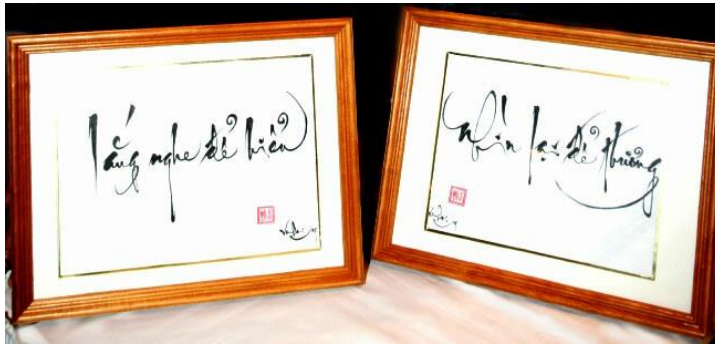 lắng nghe để hiểu
Nhìn lại để thương